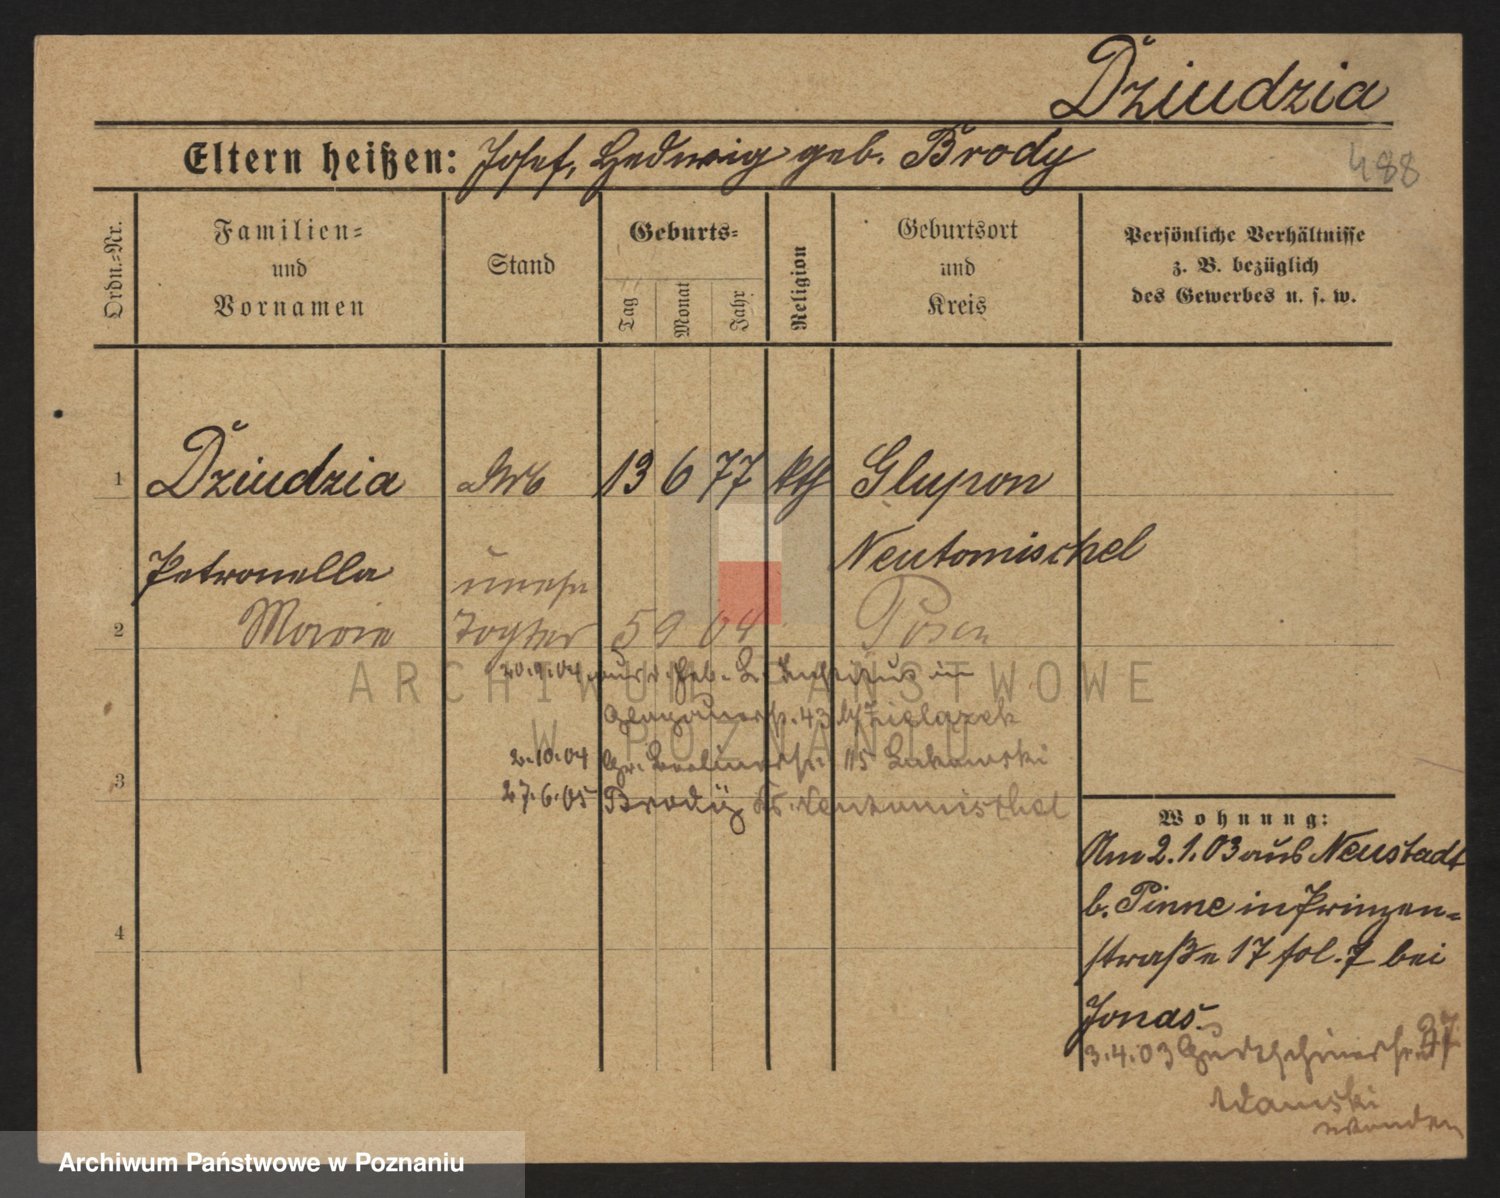 Dziudzia
Eltern heißen: Josef, Hedwig geb. Brody
488
Ordn.-Nr.
Familien-
und
Vornamen
Stand
Geburts-
Tag
Monat
Jahr
Religion
Geburtsort
und
Kreis
Persönliche Verhältnisse
z. B. bezüglich
des Gewerbes u. s. w.
1 Dziudzia Arb 13 6 77 kth Glupon
Neutomischel
Petronella unehe
2 Marie Tochter 5 9 04 Posen
20.9.04 in
ARCHIWUM PAŃSTWOWE
Glogauerstr. 43 by Zielazek
W POZNANIU
2.10.04 Gr. Berlinerstr. 115 Lukowski
3
27.6.05 Brody Kr. Neutomischel
4
Wohnung:
Am 2.1.03 aus Neustadt
b. Pinne in Prinzen-
straße 17 fol. 7 bei
Jonas.
3.4.03 37
Adamski
wenden
Archiwum Państwowe w Poznaniu